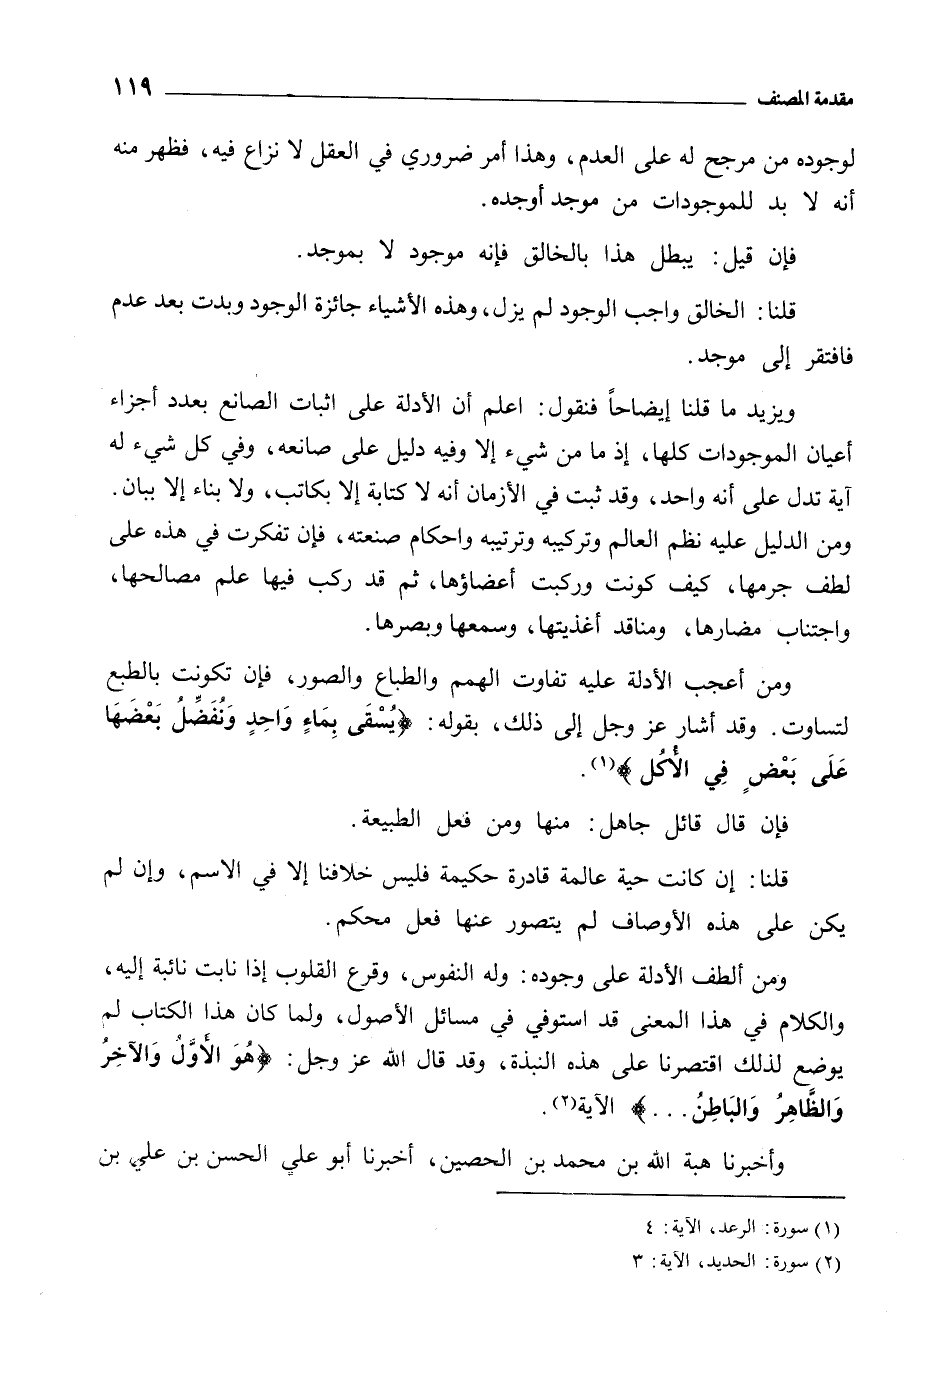 مقدمة المصنف ١١٩
لوجوده من مرجح له على العدم، وهذا أمر ضروري في العقل لا نزاع فيه، فظهر منه
أنه لا بد للموجودات من موجد أوجده.
فإن قيل: يبطل هذا بالخالق فإنه موجود لا بموجد.
قلنا: الخالق واجب الوجود لم يزل، وهذه الأشياء جائزة الوجود وبدت بعد عدم
فافتقر إلى موجد.
ويزيد ما قلنا إيضاحاً فنقول: اعلم أن الأدلة على اثبات الصانع بعدد أجزاء
أعيان الموجودات كلها، إذ ما من شيء إلا وفيه دليل على صانعه، وفي كل شيء له
آية تدل على أنه واحد، وقد ثبت في الأزمان أنه لا كتابة إلا بكاتب، ولا بناء إلا ببان.
ومن الدليل عليه نظم العالم وتركيبه وترتيبه واحكام صنعته، فإن تفكرت في هذه على
لطف جرمها، كيف كونت وركبت أعضاؤها، ثم قد ركب فيها علم مصالحها،
واجتناب مضارها، ومناقد أغذيتها، وسمعها وبصرها.
ومن أعجب الأدلة عليه تفاوت الهمم والطباع والصور، فإن تكونت بالطبع
لتساوت. وقد أشار عز وجل إلى ذلك، بقوله: ﴿يُسْقَى بِمَاءٍ وَاحِدٍ وَنُفَضِّلُ بَعْضَهَا
عَلَى بَعْضٍ فِي الأُكُل﴾(١).
فإن قال قائل جاهل: منها ومن فعل الطبيعة.
قلنا: إن كانت حية عالمة قادرة حكيمة فليس خلافنا إلا في الاسم، وإن لم
يكن على هذه الأوصاف لم يتصور عنها فعل محكم.
ومن ألطف الأدلة على وجوده: وله النفوس، وقرع القلوب إذا نابت نائبة إليه،
والكلام في هذا المعنى قد استوفي في مسائل الأصول، ولما كان هذا الكتاب لم
يوضع لذلك اقتصرنا على هذه النبذة، وقد قال الله عز وجل: ﴿هُوَ الأَوَّلُ وَالآخِرُ
وَالظَّاهِرُ وَالبَاطِنُ...﴾ الآية(٢).
وأخبرنا هبة الله بن محمد بن الحصين، أخبرنا أبو علي الحسن بن علي بن
(١) سورة: الرعد، الآية: ٤
(٢) سورة: الحديد، الآية: ٣